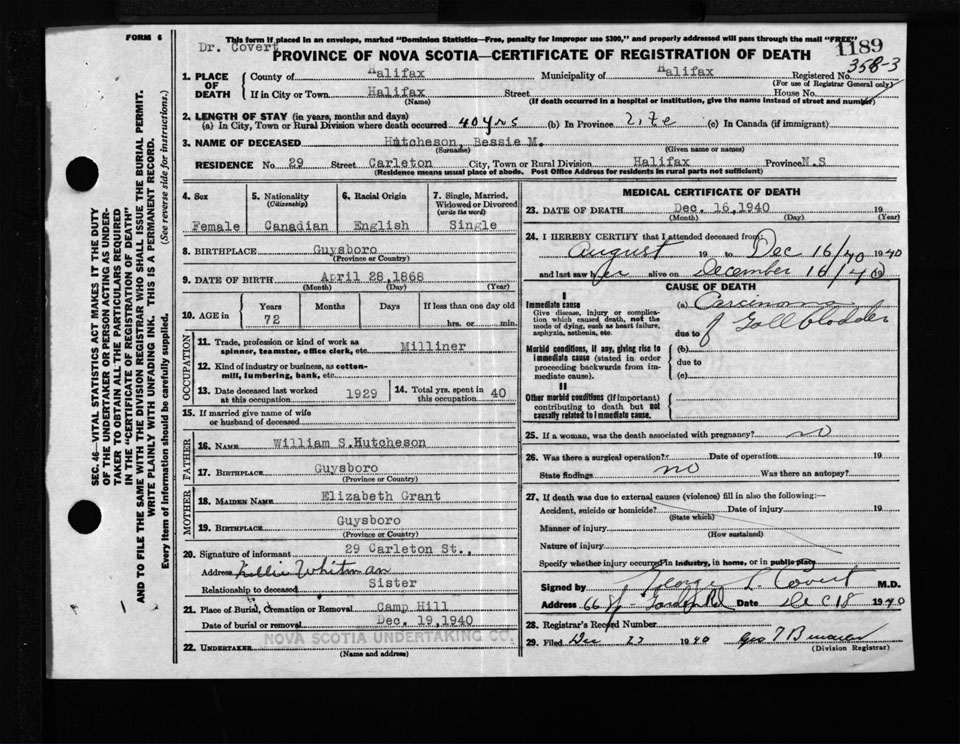 FORM 6
This form if placed in an envelope, marked "Dominion Statistics—Free, penalty for improper use $300," and properly addressed will pass through the mail "FREE"
Dr. Covert
PROVINCE OF NOVA SCOTIA—CERTIFICATE OF REGISTRATION OF DEATH
1189
358-3
1. PLACE OF DEATH
County of Halifax Municipality of Halifax Registered No.
(For use of Registrar General only)
If in City or Town Halifax Street House No.
(Name) (If death occurred in a hospital or institution, give the name instead of street and number)
2. LENGTH OF STAY (in years, months and days)
(a) In City, Town or Rural Division where death occurred 40 yrs (b) In Province Life (c) In Canada (if immigrant)
3. NAME OF DECEASED Hutcheson, Bessie M.
(Surname) (Given name or names)
RESIDENCE No. 29 Street Carleton City, Town or Rural Division Halifax Province N.S
(Residence means usual place of abode. Post Office Address for residents in rural parts not sufficient)
4. Sex 5. Nationality (Citizenship) 6. Racial Origin 7. Single, Married, Widowed or Divorced (write the word)
Female Canadian English Single
8. BIRTHPLACE Guysboro
(Province or Country)
9. DATE OF BIRTH April 28, 1868
(Month) (Day) (Year)
10. AGE in Years Months Days If less than one day old
72 hrs. or min.
OCCUPATION
11. Trade, profession or kind of work as spinner, teamster, office clerk, etc. Milliner
12. Kind of industry or business, as cotton-mill, lumbering, bank, etc.
13. Date deceased last worked at this occupation 1929 14. Total yrs. spent in this occupation 40
15. If married give name of wife or husband of deceased
FATHER
16. NAME William S. Hutcheson
17. BIRTHPLACE Guysboro
(Province or Country)
MOTHER
18. MAIDEN NAME Elizabeth Grant
19. BIRTHPLACE Guysboro
(Province or Country)
20. Signature of informant 29 Carleton St.,
Address Whitman
Relationship to deceased Sister
21. Place of Burial, Cremation or Removal Camp Hill
Date of burial or removal Dec. 19, 1940
NOVA SCOTIA UNDERTAKING CO.
22. UNDERTAKER
(Name and address)
MEDICAL CERTIFICATE OF DEATH
23. DATE OF DEATH Dec. 16, 1940 19
(Month) (Day) (Year)
24. I HEREBY CERTIFY that I attended deceased from:
August 19 to Dec 16/40 1940
and last saw her alive on December 16/40 19
CAUSE OF DEATH
I
Immediate cause (a) Carcinoma
Give disease, injury or complication which caused death, not the mode of dying, such as heart failure, asphyxia, asthenia, etc.
due to of Gall Bladder
Morbid conditions, if any, giving rise to immediate cause (stated in order proceeding backwards from immediate cause).
(b)
due to
(c)
II
Other morbid conditions (if important) contributing to death but not causally related to immediate cause.
25. If a woman, was the death associated with pregnancy? no
26. Was there a surgical operation? Date of operation 19
State findings no Was there an autopsy?
27. If death was due to external causes (violence) fill in also the following:—
Accident, suicide or homicide? Date of injury 19
(State which)
Manner of injury
(How sustained)
Nature of injury
Specify whether injury occurred in industry, in home, or in public place
Signed by George L Covert M.D.
Address 66 Date Dec 18 1940
28. Registrar's Record Number
29. Filed Dec 23 1940 Geo
(Division Registrar)
SEC. 46—VITAL STATISTICS ACT MAKES IT THE DUTY
OF THE UNDERTAKER OR PERSON ACTING AS UNDER-
TAKER TO OBTAIN ALL THE PARTICULARS REQUIRED
IN THE "CERTIFICATE OF REGISTRATION OF DEATH"
AND TO FILE THE SAME WITH THE DIVISION REGISTRAR WHO SHALL ISSUE THE BURIAL PERMIT.
WRITE PLAINLY WITH UNFADING INK. THIS IS A PERMANENT RECORD.
Every item of Information should be carefully supplied. (See reverse side for instructions.)